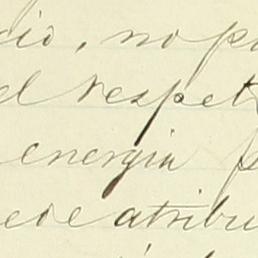 cio, no po
el respet
energia p
ede atribu